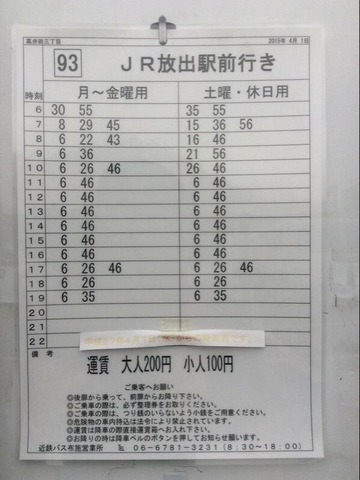 高井田三丁目 2015年 4月 1日
93 JR放出駅前行き
時刻 月～金曜用 土曜・休日用
6 30 55 35 55
7 8 29 45 15 36 56
8 6 22 43 16 46
9 6 36 21 56
10 6 26 46 26 46
11 6 46 6 46
12 6 46 6 46
13 6 46 6 46
14 6 46 6 46
15 6 46 6 46
16 6 46 6 46
17 6 26 46 6 26 46
18 6 26 6 26
19 6 35 6 35
20
21
22
備考
運賃 大人200円 小人100円
ご乗客へお願い
◎後扉から乗って、前扉からお降り下さい。
◎ご乗車の際は、必ず整理券をお取りください。
◎ご乗車の際は、つり銭のいらないよう小銭をご用意ください。
◎危険物の車内持込は法令により禁止されています。
◎運賃は降車の際直接運賃箱へお入れ下さい。
◎お降りの時は降車ベルのボタンを押してお知らせ願います。
近鉄バス布施営業所 06-6781-3231(8:30～18:00)